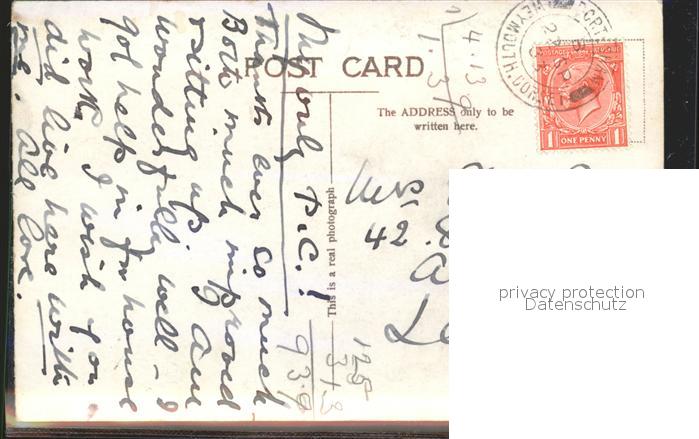 My only P.C.!
Thanks ever so much
Both much improved
sitting up. I am
wonderfully well – I
got help in for house
work. I wish you
did live here with
me. All love.
POST CARD
The ADDRESS only to be
written here.
This is a real photograph
4.13.9
1.3
PORT
WEYMOUTH. DORSET
POSTAGE REVENUE
1 ONE PENNY 1
Mrs
42.
125
31.3
93.9
privacy protection
Datenschutz